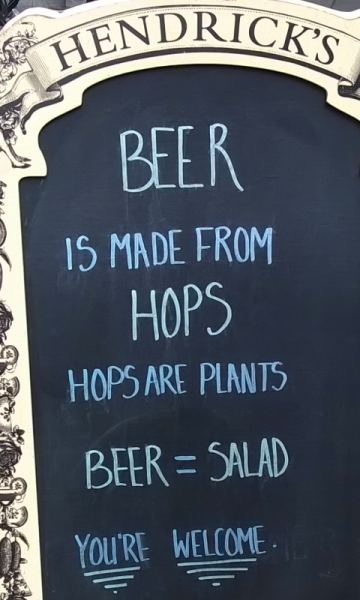 HENDRICK'S
BEER
IS MADE FROM
HOPS
HOPS ARE PLANTS
BEER = SALAD
YOU'RE WELCOME.